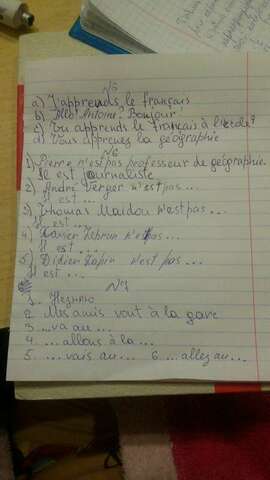 №5
a) J'apprends le français
b) Allô Antoine! Bonjour
c) Tu apprends le français à l'école?
d) Vous apprenez la géographie
№6
1) Pierre n'est pas professeur de géographie.
Il est journaliste
2) André Verger n'est pas ...
3) Thomas Maidou n'est pas ...
Il est ...
4) Lebrun n'est pas ...
Il est ...
5) Didier Lapin n'est pas ...
Il est ...
№7
1.
2. Mes amis vont à la gare
3. ...va au ...
4. ...allons à la ...
5. ...vais au ... 6. ...allez au ...